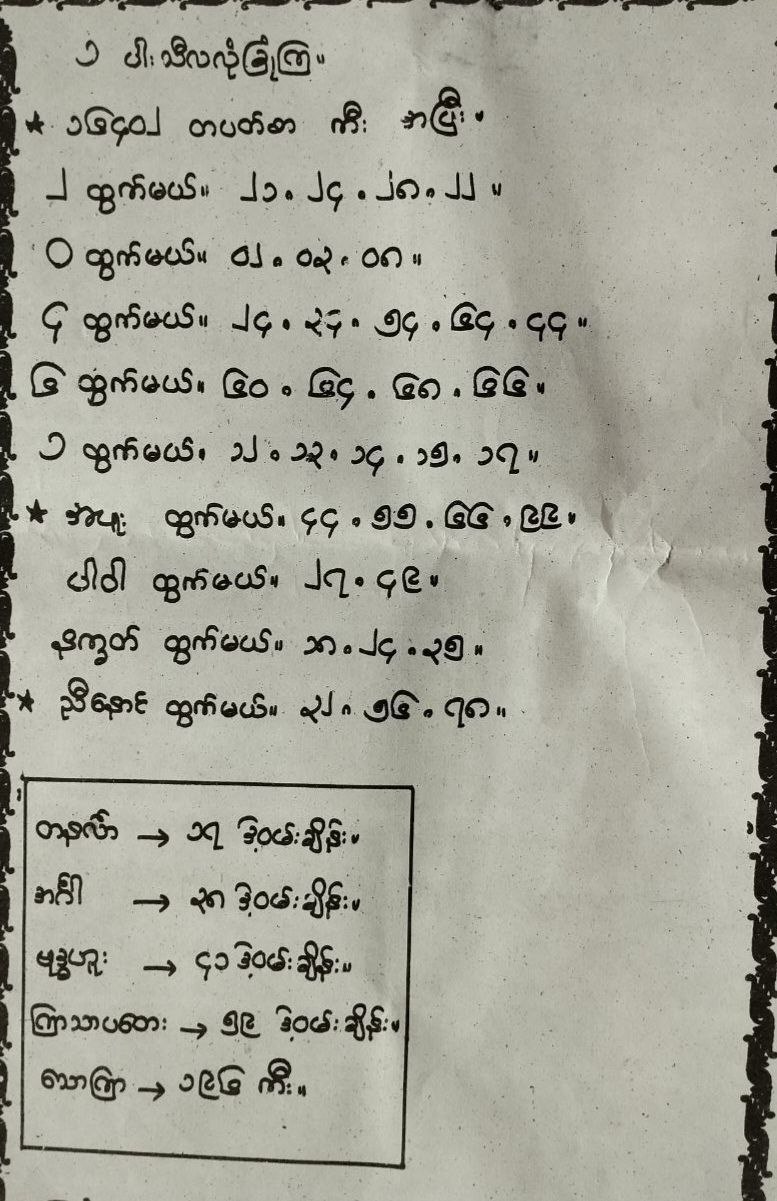 ၁ ပါး သီလလုံခြုံကြ။
★ ၁၆၄၀၂ တပတ်စာ ကီး အပြီး။
၂ ထွက်မယ်။ ၂၁။ ၂၄။ ၂၈။ ၂၂။
၀ ထွက်မယ်။ ၀၂။ ၀၃။ ၀၈။
၄ ထွက်မယ်။ ၂၄။ ၃၄။ ၅၄။ ၆၄။ ၄၄။
၆ ထွက်မယ်။ ၆၀။ ၆၄။ ၆၈။ ၆၆။
၁ ထွက်မယ်။ ၁၂။ ၁၃။ ၁၄။ ၁၅။ ၁၇။
★ အပူး ထွက်မယ်။ ၄၄။ ၅၅။ ၆၆။ ၉၉။
ပါဝါ ထွက်မယ်။ ၂၇။ ၄၉။
နိက္ခတ် ထွက်မယ်။ ၁၈။ ၂၄။ ၃၅။
★ ညီနောင် ထွက်မယ်။ ၃၂။ ၅၆။ ၇၈။
တနင်္လာ → ၁၇ ဒဲ့ဝမ်းချိန်း။
အင်္ဂါ → ၃၈ ဒဲ့ဝမ်းချိန်း။
ဗုဒ္ဓဟူး → ၄၁ ဒဲ့ဝမ်းချိန်း။
ကြာသာပတေး → ၅၉ ဒဲ့ဝမ်းချိန်း။
သောကြာ → ၁၉၆ ကီး။